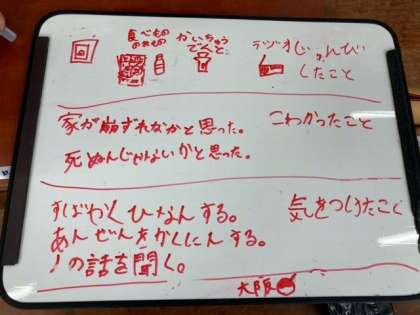 食べもの
のみもの
かいちゅう
でんとう
ラジオ
じゅんび
したこと
家が崩ずれなかと思った。
こわかったこと
死ぬんじゃないかと思った。
すばやくひなんする。
気をつけたこと
あんぜんをかくにんする。
の話を聞く。
大阪